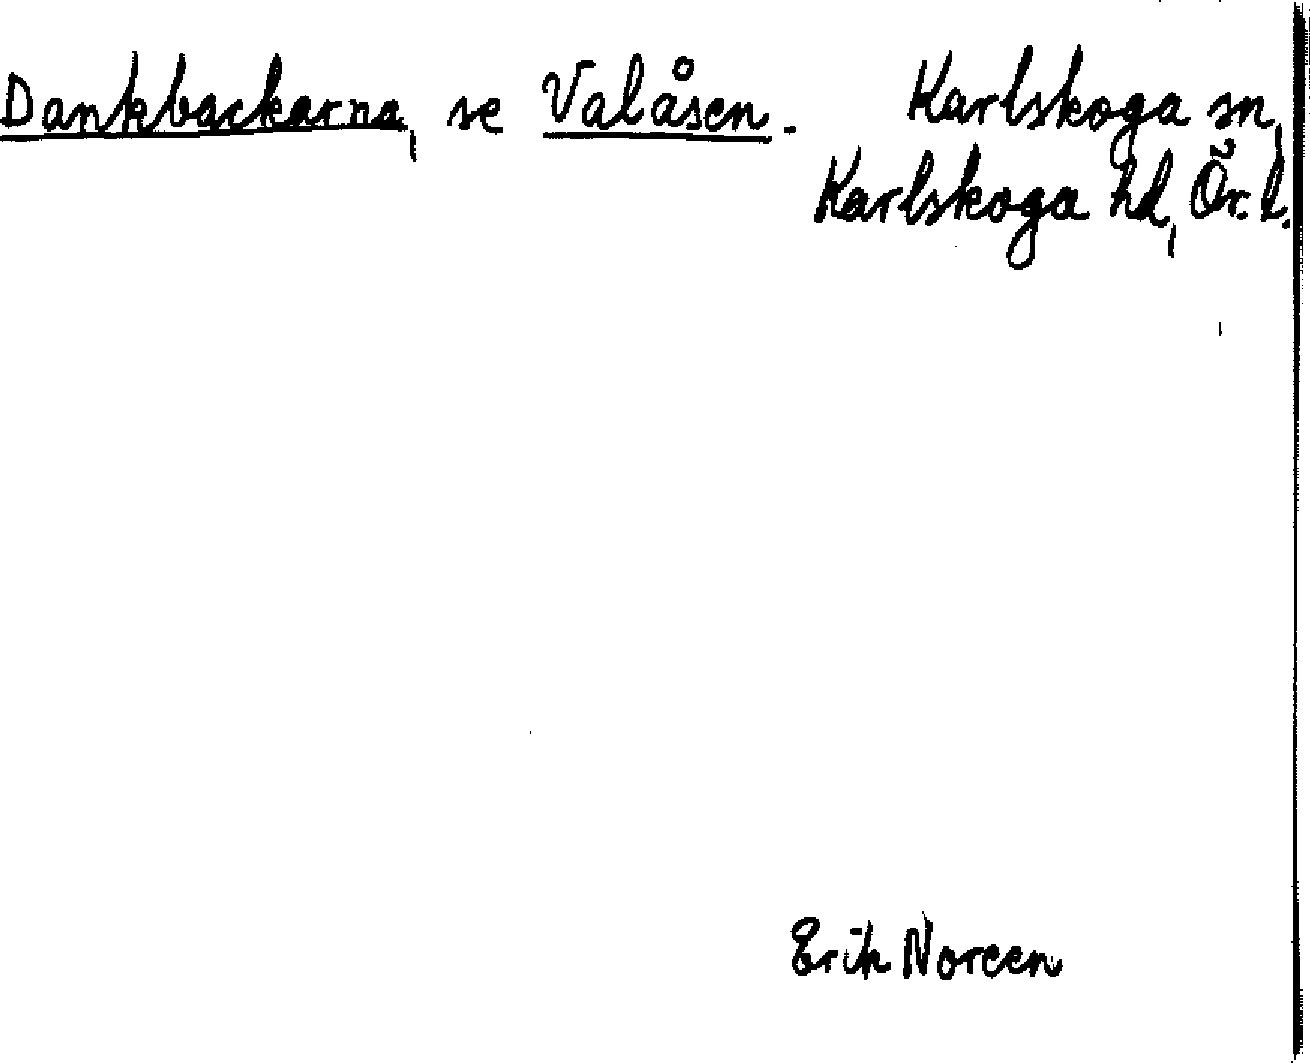 Dankbackarna, se Valåsen. Karlskoga sn,
Karlskoga hd, Ör. l.
Erik Noreen